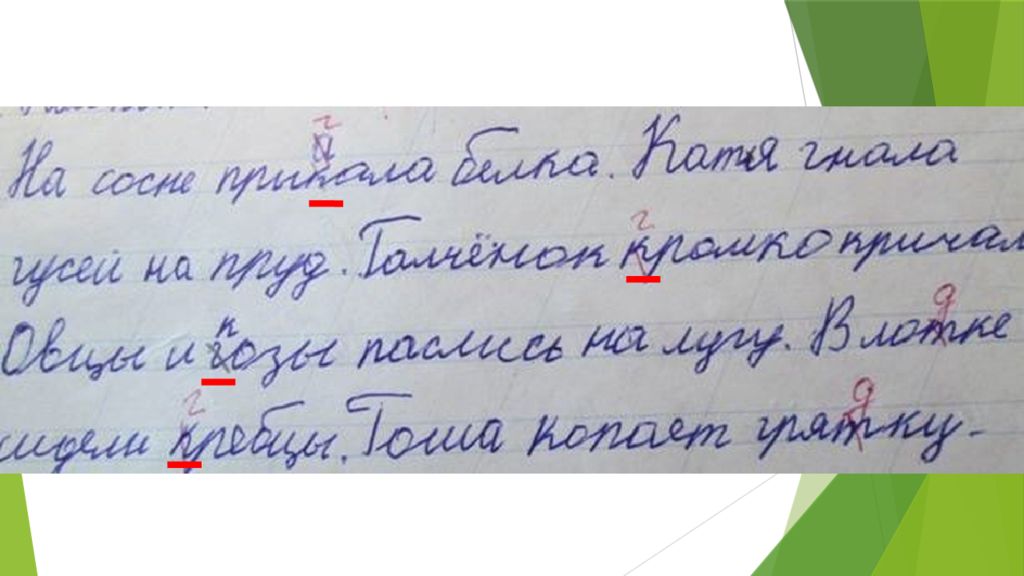 На сосне прыкала белка. Катя гнала
гусей на пруд. Галчёнок кромко кричал
Овцы и гозы паслись на лугу. В лотке
сидели кребцы. Гоша копает грятку.